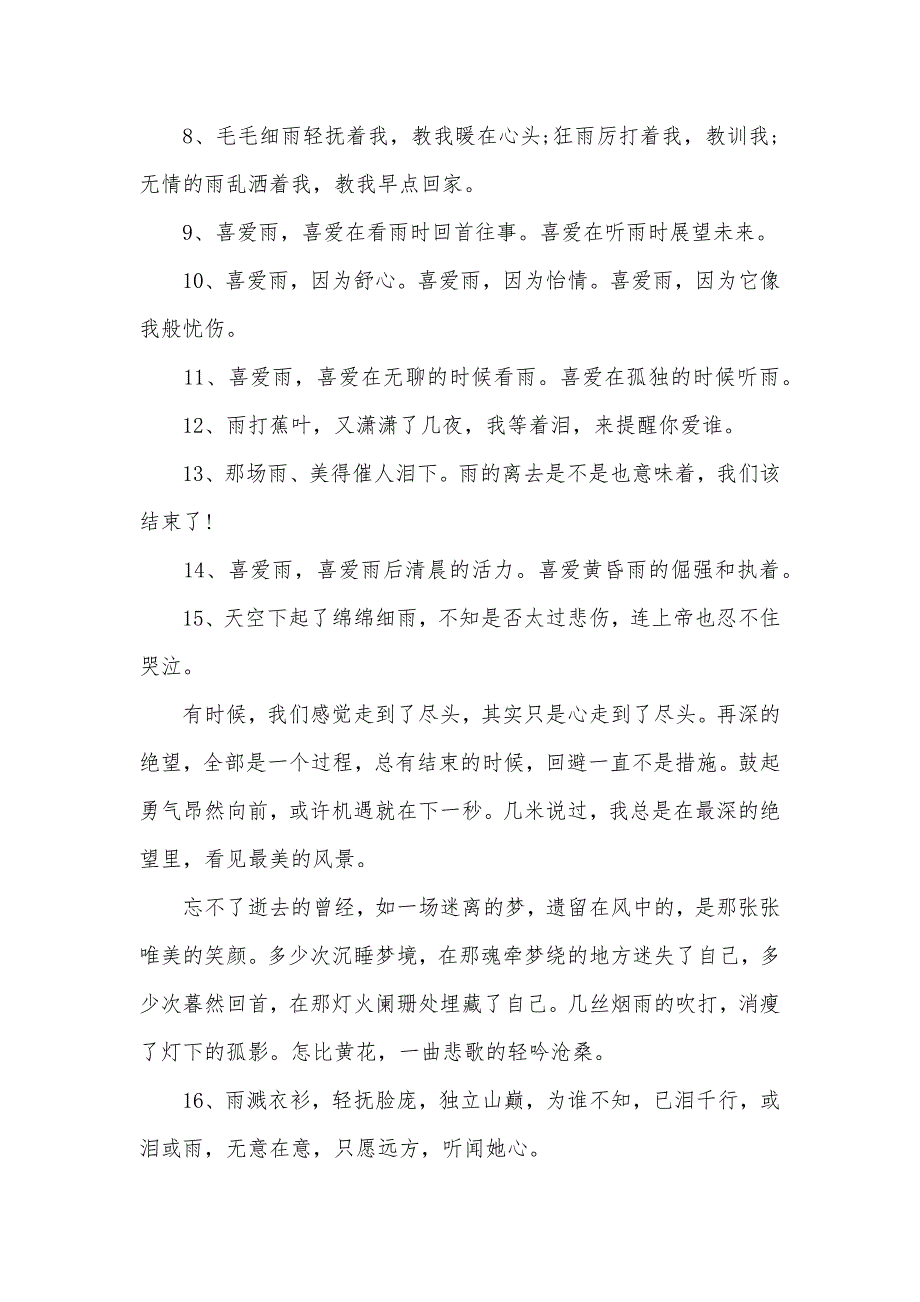 8、毛毛细雨轻抚着我，教我暖在心头;狂雨厉打着我，教训我;
无情的雨乱洒着我，教我早点回家。
9、喜爱雨，喜爱在看雨时回首往事。喜爱在听雨时展望未来。
10、喜爱雨，因为舒心。喜爱雨，因为怡情。喜爱雨，因为它像
我般忧伤。
11、喜爱雨，喜爱在无聊的时候看雨。喜爱在孤独的时候听雨。
12、雨打蕉叶，又潇潇了几夜，我等着泪，来提醒你爱谁。
13、那场雨、美得催人泪下。雨的离去是不是也意味着，我们该
结束了!
14、喜爱雨，喜爱雨后清晨的活力。喜爱黄昏雨的倔强和执着。
15、天空下起了绵绵细雨，不知是否太过悲伤，连上帝也忍不住
哭泣。
有时候，我们感觉走到了尽头，其实只是心走到了尽头。再深的
绝望，全部是一个过程，总有结束的时候，回避一直不是措施。鼓起
勇气昂然向前，或许机遇就在下一秒。几米说过，我总是在最深的绝
望里，看见最美的风景。
忘不了逝去的曾经，如一场迷离的梦，遗留在风中的，是那张张
唯美的笑颜。多少次沉睡梦境，在那魂牵梦绕的地方迷失了自己，多
少次暮然回首，在那灯火阑珊处埋藏了自己。几丝烟雨的吹打，消瘦
了灯下的孤影。怎比黄花，一曲悲歌的轻吟沧桑。
16、雨溅衣衫，轻抚脸庞，独立山巅，为谁不知，已泪千行，或
泪或雨，无意在意，只愿远方，听闻她心。